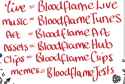 Live = Bloodflame Live
music = Bloodflame Tunes
Art = Bloodflame Art
Assets = Bloodflame Hub
Clips = Bloodflame Cups
memes = Bloodflame Jests